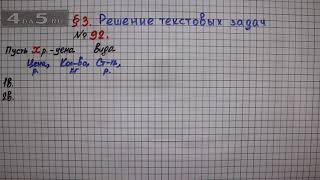 4DA5.RU
§3. Решение текстовых задач
№ 92.
Пусть х р.-цена I вида
Цена, Кол-во, Ст-ть,
р. кг р.
1в.
2в.